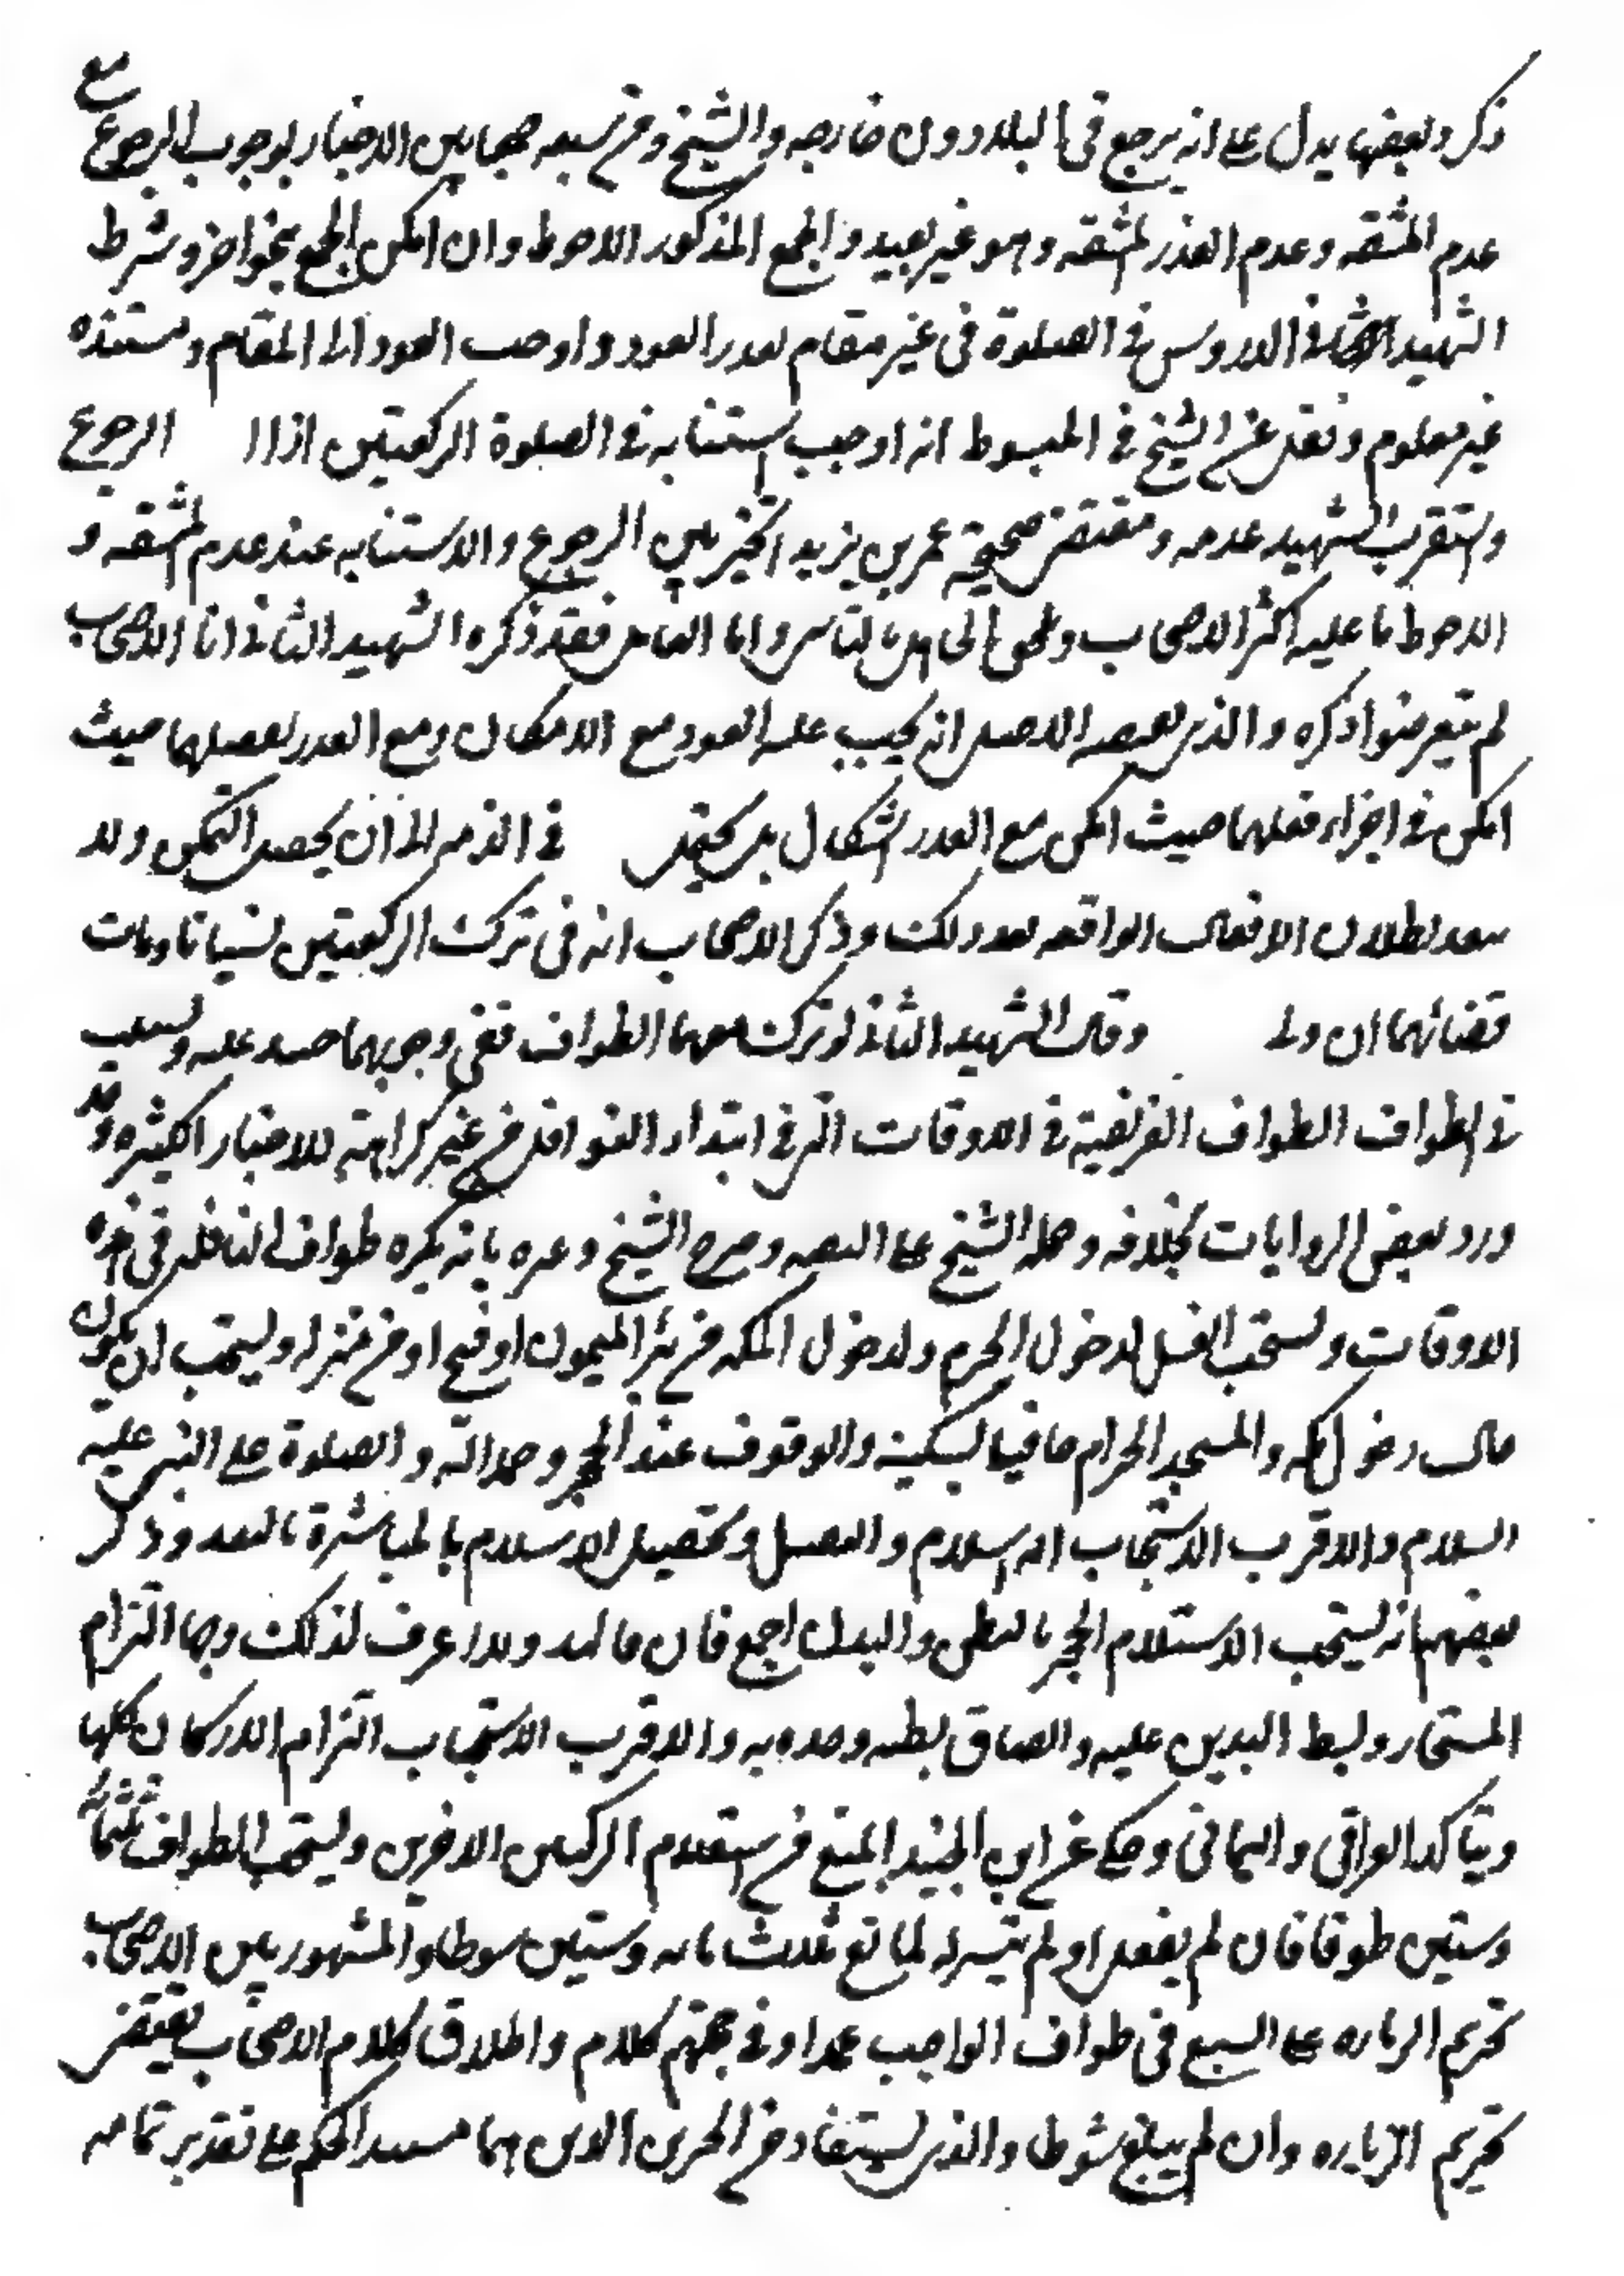 ذكر وبعضها يدل على انه يرجع في البلاد دون خارجه والشيخ ومن تبعه جمعا بين الاخبار بوجوب الرجوع مع
عدم المشقه وعدم العذر لمشقه وهو غير بعيد والجمع المذكور الاحوط وان امكن الجمع بنحو اخر وشرط
الشهيد في الدروس في الصلوة في غير مقام تعذر العود واوجب العود الى المقام ومستنده
غير معلوم ونقل عن الشيخ في المبسوط انه اوجب استنابه في الصلوة الركعتين اذا الرجوع
واستقرب الشهيد عدمه ومقتضى صحيحة عمر بن يزيد التخيير بين الرجوع والاستنابه عند عدم المشقه و
الاحوط ما عليه اكثر الاصحاب ويلحق الجاهل بالناسي واما العامل فقد ذكره الشهيد الثاني انا الاصحاب
لم يتعرضوا ذكره والذي يقتضيه الاصل انه يجب عليه العود مع الامكان ومع العذر يصليهما حيث
امكن في اجزاء فعلهما حيث امكن مع العذر اشكال بل يحتمل في الذمه الى ان يحصل التمكن ولا
يبعد بطلان الافعال الواقعه بعد ذلك وذكر الاصحاب انه في ترك الركعتين نسيانا ومات
قضائهما ان ولى وقال الشهيد الثاني لو ترك معهما الطواف ففي وجوبهما حينئذ عليه ويستحب
في الطواف الطواف الفريضية في الاوقات التي في ابتداء النوافل من غير كراهة للاخبار الكثيره وقد
ورد بعض الروايات بخلافه وحمله الشيخ على التقيه وصرح الشيخ وغيره بانه يكره طواف النافله في هذه
الاوقات ويستحب الغسل لدخول الحرم ولدخول المكه من بئر الميمون او فخ او من منزله ويستحب ان يكون
حال دخول مكه والمسجد الحرام حافيا بسكينه والوقوف عند الحجر وحمد الله والصلوة على النبي عليه
السلام والاقرب الاستحباب الاستلام و وتحصيل الاستلام بالمباشرة باليد وذكر
بعضهم انه يستحب الاستلام الحجر بالبطن والبدن اجمع فان ولا اعرف لذلك وجها التزام
المستجار وبسط اليدين عليه والصاق بطنه وخده به والاقرب الاستحباب التزام الاركان كلها
ويتاكد العراقي واليماني وحكي عن ابن الجنيد المنع من استلام الركنين الاخرين ويستحب الطواف ثلثمائة
وستين طوفا فان لم يفعل او لم يتيسر له لمانع ثلاث مائه وستين شوطا والمشهور بين الاصحاب
تحريم الزياره على السبع في طواف الواجب عمدا وفي حجتهم كلام واطلاق كلام الاصحاب يقتضي
تحريم الزياره وان لم يبلغ شوطا والذي يستفاد من الخبرين الذين هما مستند الحكم على تقدير تمامه